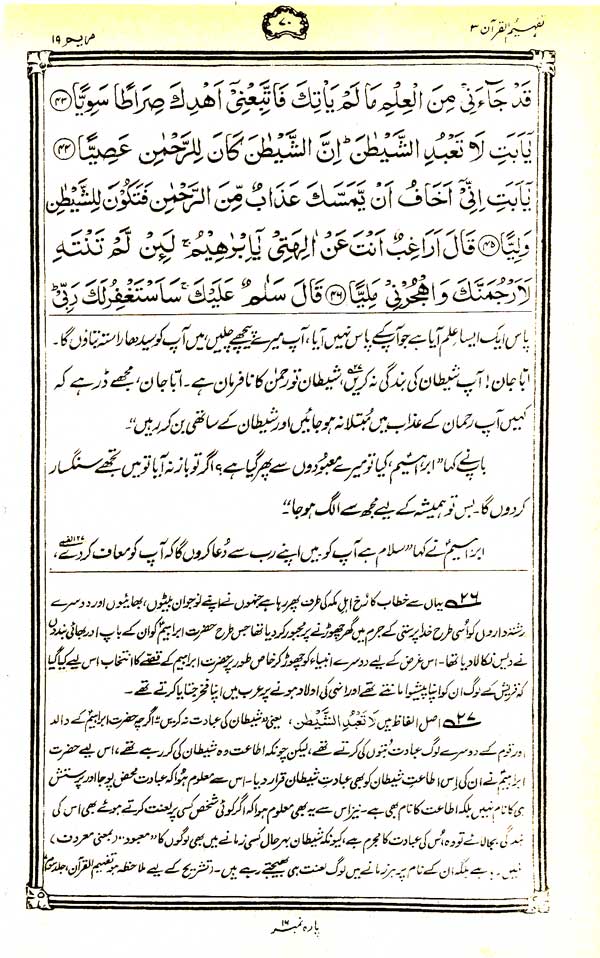 تفہیم القرآن ۳
۷۰
مریم ۱۹
قَدْ جَآءَنِیْ مِنَ الْعِلْمِ مَا لَمْ یَاْتِكَ فَاتَّبِعْنِیْۤ اَهْدِكَ صِرَاطًا سَوِیًّا ﴿۴۳﴾
یٰۤاَبَتِ لَا تَعْبُدِ الشَّیْطٰنَ ؕ اِنَّ الشَّیْطٰنَ كَانَ لِلرَّحْمٰنِ عَصِیًّا ﴿۴۴﴾
یٰۤاَبَتِ اِنِّیْۤ اَخَافُ اَنْ یَّمَسَّكَ عَذَابٌ مِّنَ الرَّحْمٰنِ فَتَكُوْنَ لِلشَّیْطٰنِ
وَلِیًّا ﴿۴۵﴾ قَالَ اَرَاغِبٌ اَنْتَ عَنْ اٰلِهَتِیْ یٰۤاِبْرٰهِیْمُ ۚ لَئِنْ لَّمْ تَنْتَهِ
لَاَرْجُمَنَّكَ وَاهْجُرْنِیْ مَلِیًّا ﴿۴۶﴾ قَالَ سَلٰمٌ عَلَیْكَ ۚ سَاَسْتَغْفِرُ لَكَ رَبِّیْ ؕ
پاس ایک ایسا علم آیا ہے جو آپ کے پاس نہیں آیا، آپ میرے پیچھے چلیں، میں آپ کو سیدھا راستہ بتاؤں گا۔
ابّا جان! آپ شیطان کی بندگی نہ کریں، شیطان تو رحمٰن کا نافرمان ہے۔ ابّا جان، مجھے ڈر ہے کہ
کہیں آپ رحمان کے عذاب میں مُبتلا نہ ہو جائیں اور شیطان کے ساتھی بن کر رہیں“۔
باپ نے کہا ”ابراہیمؑ، کیا تو میرے معبُودوں سے پھر گیا ہے؟ اگر تو باز نہ آیا تو میں تجھے سنگسار
کردوں گا۔ بس تو ہمیشہ کے لیے مجھ سے الگ ہو جا“۔
ابراہیمؑ نے کہا ”سلام ہے آپ کو۔ میں اپنے رب سے دُعا کروں گا کہ آپ کو معاف کر دے،
۲۶ یہاں سے خطاب کا رُخ اہلِ مکہ کی طرف پھر رہا ہے جنہوں نے اپنے نوجوان بیٹوں، بھائیوں اور دوسرے
رشتہ داروں کو اُسی طرح خدا پرستی کے جرم میں گھر چھوڑنے پر مجبور کر دیا تھا جس طرح حضرت ابراہیمؑ کو ان کے باپ اور بھائی بندوں
نے دیس نکالا دیا تھا۔ اس غرض کے لیے دوسرے انبیاء کو چھوڑ کر خاص طور پر حضرت ابراہیم کے قصّے کا انتخاب اس لیے کیا گیا
کہ قریش کے لوگ ان کو اپنا پیشوا مانتے تھے اور انہی کی اولاد ہونے پر عرب میں اپنا فخر جتایا کرتے تھے۔
۲۷ اصل الفاظ ہیں لَا تَعْبُدِ الشَّیْطٰنَ، یعنی ”شیطان کی عبادت نہ کریں“ اگرچہ حضرت ابراہیمؑ کے والد
اور قوم کے دوسرے لوگ عبادت بُتوں کی کرتے تھے، لیکن چونکہ اطاعت وہ شیطان کی کر رہے تھے، اس لیے حضرت
ابراہیمؑ نے ان کی اِس اطاعتِ شیطان کو بھی عبادتِ شیطان قرار دیا۔ اس سے معلوم ہوا کہ عبادت محض پوجا اور پرستش
ہی کا نام نہیں بلکہ اطاعت کا نام بھی ہے۔ نیز اس سے یہ بھی معلوم ہوا کہ اگر کوئی شخص کسی پر لعنت کرتے ہوئے بھی اس کی
بندگی بجا لائے تو وہ اُس کی عبادت کا مجرم ہے، کیونکہ شیطان بہرحال کسی زمانے میں بھی لوگوں کا ”معبود“ (بمعنی معروف)
نہیں رہا ہے بلکہ ان کے نام پر ہر زمانے میں لوگ لعنت ہی بھیجتے رہے ہیں۔ (تشریح کے لیے ملاحظہ ہو تفہیم القرآن، جلد سوم،
پارہ نمبر ۱۶